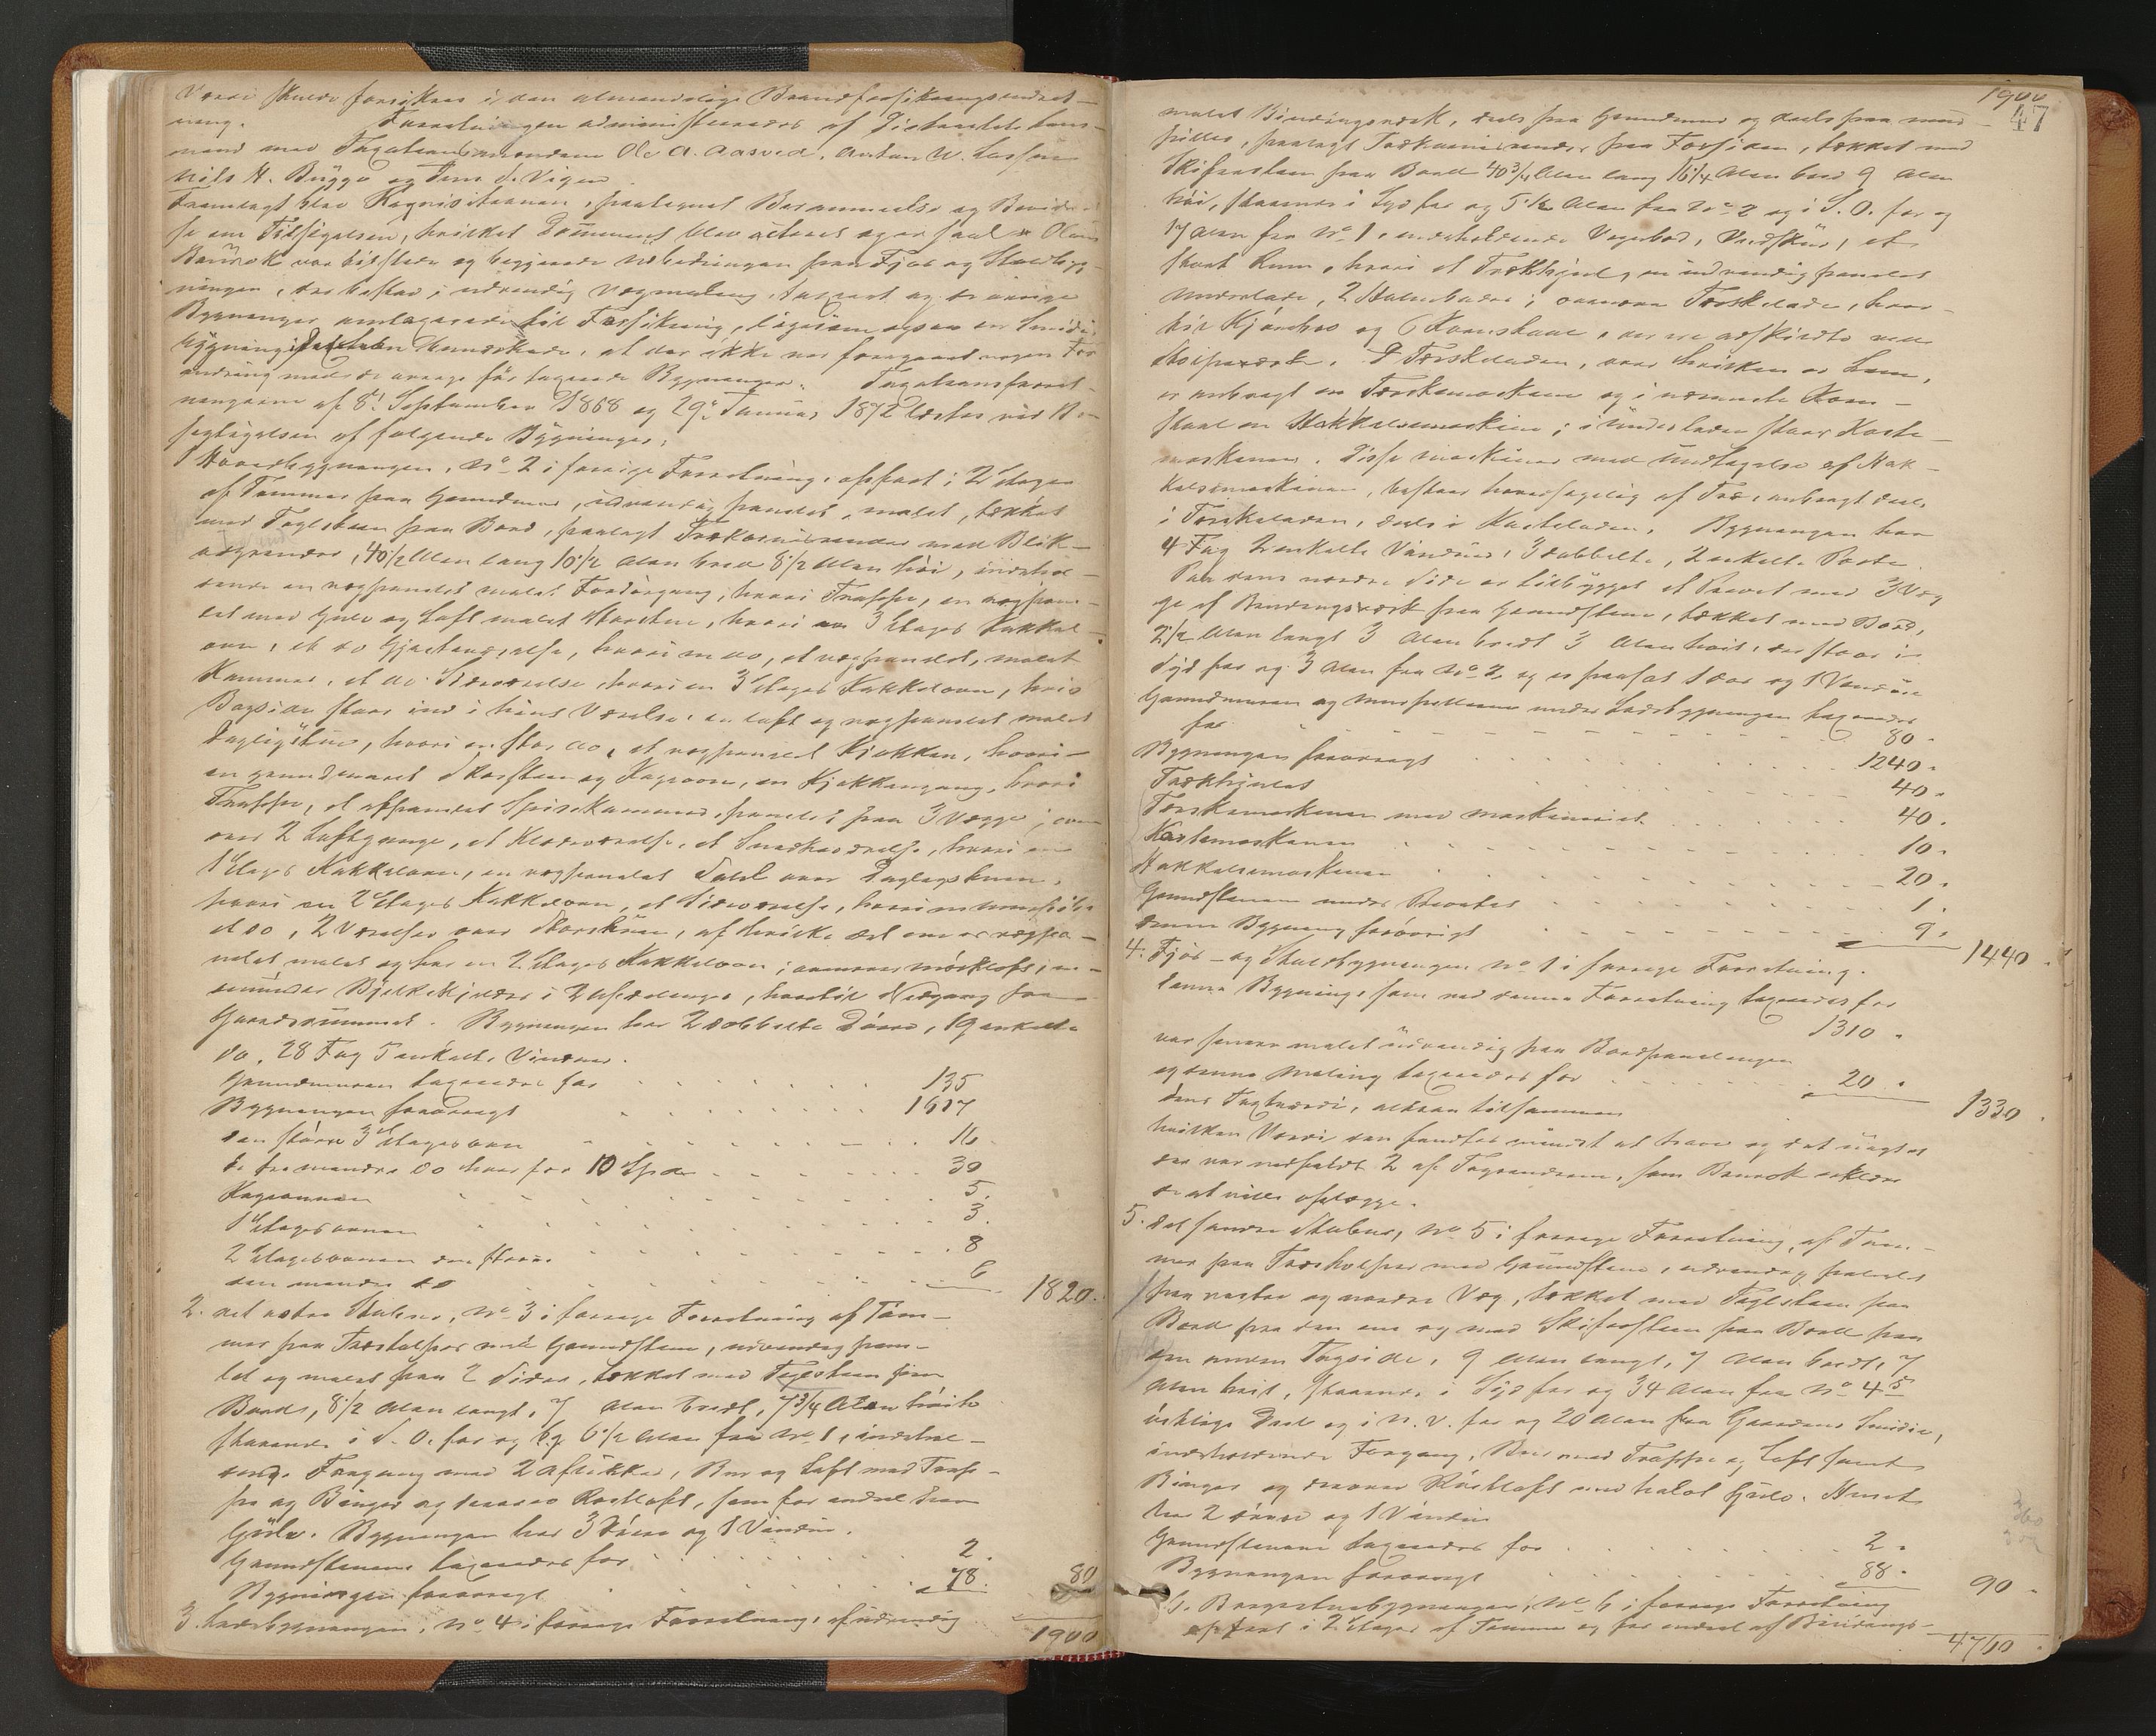 Værdi skulde forsikres i den almindelige Brandforsikringsindret-
ning. Forretningen administreredes af Districtets Lens-
mand med Taxationsmændene Ole A. Aasved, Anton W. Larsen
Nils H. Bügge og Jens J. Vigen
Fremlagt blev Reqvisitionen, paategnet Berammelse og Bevidnel-
se om Tilsigelsen, hvilket Document blev acteret og er saal.
var tilstede og begjærede Udbedringen paa Fjøs og Staldbyg-
ningen, der bestaar i udvendig Vægmaling, taxeret og de øvrige
Bygninger omtaxerede til Forsikring, ligesom ogsaa en Smidie-
bygning, at der ikke var foregaaet nogen For-
andring med de øvrige før taxerede Bygninger. Taxationsforret-
ningerne af 8. September 1868 og 29. Januar 1872 læstes ved Be-
sigtigelsen af følgende Bygninger:
1 Hovedbygningen, No 2 i forrige Forretning, opført i 2 Etager
af Tømmer paa Grundmur, udvendig panelet, malet, tækket
med Taglsteen paa Bord, paalagt Trækornisrender med Blik-
nedgrender, 40 1/2 Alen lang 10 1/2 Alen bred 8 1/2 Alen høi, indehol-
dende en vægpanelet malet Fordørgang, hvori Trappe, en vægpane-
let med Gulv og Loft malet Storstue, hvori en 3 Etages Kakkel-
ovn, et do Gjæsteværelse, hvori en do, et vægpanelet, malet
Kammer, et do Sideværelse hvori en 3 Etages Kakkelovn, hvis
Bagside staar ind i hiint Værelse; en loft og vægpanelet malet
Dagligstue, hvori en stor do, et vægpanelet Kjøkken, hvori
en grundmuret Skorsteen og Bageovn, en Kjøkkengang, hvori
Trappe, et afpanelet Spisekammer, panelet paa 3 Vægge; oven-
over 2 Loftgange, et Klædeværelse, et Snedkerværelse, hvori en
1 Etages Kakkelovn, en vægpanelet Sahl over Dagligstuen,
hvori en 2 Etages Kakkelovn, et Sideværelse,
et do, 2 Værelser over Storstuen, af hvilke det ene er vægpa-
nelet malet og har en 2 Etages Kakkelovn; ovenover mørkloft; ne-
denunder Bjelkekjelder i 2 Afdelinger, hvortil Nedgang fra
Gaardsrummet. Bygningen har 2 dobbelte Døre, 19 enkelte
do, 28 Fag 5 enkelte Vinduer.
Grundmuren taxeredes for . . . 135
Bygningen forøvrigt . . . 1617
den større 3 Etagesovn . . . 16
de tre mindre do hver for 10 Spd . . . 30
Bageovnen . . . 5.
1 Etagesovnen . . . 3.
2 Etagesovnen den større . . . 8
den mindre do . . . 6 1820.
2. det østre Stabur, No 3 i forrige Forretning af Tøm-
mer paa Træstolper med Grundstene, udvendig pane-
let og malet paa 2 Sider, tækket med Taglsteen paa
Bord, 8 1/2 Alen langt, 7 Alen bredt, 7 3/4 Alen høit
staaende i S.O. for og 6 1/2 Alen fra No 1, indehol-
dende Forgang med 2 Aflukker, Bur og Loft med Trap-
pe og Binger og derover Røstloft, som for endeel har
Gulv. Bygningen har 3 Døre og 1 Vindue.
Grundstenene taxeredes for . . . 2.
Bygningen forøvrigt . . . 78. 80
3. Ladebygningen, No 4 i forrige Forretning, af udvendig
1900
1900
47
malet Bindingsværk, deels paa Grundmur og deels paa muur-
piller, paalagt Trækornisrender paa Forsiden, tækket med
Skifersteen paa Bord 40 3/4 Alen lang 16 1/4 Alen bred 9 Alen
høi, staaende i Syd for og 5 1/2 Alen fra No 2 og i S.O. for og
17 Alen fra No 1, indeholdende Vognbod, Vedskuur, et
stort Rum, hvori et Trækhjul, en indvendig panelet
Underlade, 2 Halmboder; ovenover Tærskelade, hvor-
til Kjørebro og 6 Kornstaal, der ere adskildte ved
Stolpeværk. I Tærskeladen, over hvilken er Lem,
er anbragt en Tærskemaskine og i nævnte Korn-
staal en Hakkelsemaskine; i Underladen staar Kaste-
maskinen. Disse maskiner med Undtagelse af Hak-
kelsemaskinen, bestaar hovedsagelig af Træ, anbragt deels
i Tærskeladen, deels i Kasteladen. Bygningen har
4 Fag 2 enkelte Vinduer, 3 dobbelte, 2 enkelte Porte.
Paa dens nordre Side er tilbygget et Privet med 3 Væg-
ge af Bindingsværk paa Grundstene, tækket med Bord,
2 1/2 Alen langt 3 Alen bredt 3 Alen høit, der staar i
Syd for og 3 Alen fra No 2 og er paasat 1 Dør og 1 Vindue
Grundmuren og muurpillerne under Ladebygningen taxeredes
for . . . 80.
Bygningen forøvrigt . . . 1240.
Trækhjulet . . . 40.
Tærskemaskinen med maskineriet . . . 40.
Kastemaskinen . . . 10.
Hakkelsemaskinen . . . 20.
Grundstenene under Privetet . . . 1.
denne Bygning forøvrigt . . . 9. 1440.
4. Fjøs- og Staldbygningen No 1 i forrige Forretning.
Denne Bygning, som ved denne Forretning taxeredes for
1310.
var senere malet udvendig paa Bordpanelingen
og denne Maling taxeredes for . . . 20.
dens Taxtværdi, altsaa tilsammen 1330.
hvilken Værdi den fandtes mindst at have og det uagtet
der var nedfaldt 2 af Tagrenderne, som erklærede
at ville oplægge.
5. det søndre Stabur, No 5 i forrige Forretning, af Tøm-
mer paa Træstolper med Grundstene, udvendig panelet
paa vestre og nordre Væg, tækket med Taglsteen paa
Bord paa den ene og med Skifersteen paa Bord paa
den anden Tagside, 9 Alen langt, 7 Alen bredt, 7
Alen høit, staaende i Syd for og 34 Alen fra No 4's
østlige Deel og i N.V. for og 20 Alen fra Gaardens Smidie,
indeholdende Forgang, Bur med Trappe og Loft samt
Binger og derover Røstloft med halvt Gulv. Huset
har 2 Døre og 1 Vindue
Grundstenene taxeredes for . . . 2.
Bygningen forøvrigt . . . 88. 90.
6. Borgestuebygningen, No 6 i forrige Forretning
opført i 2 Etager af Tømmer og for endeel af Bindings-
4760